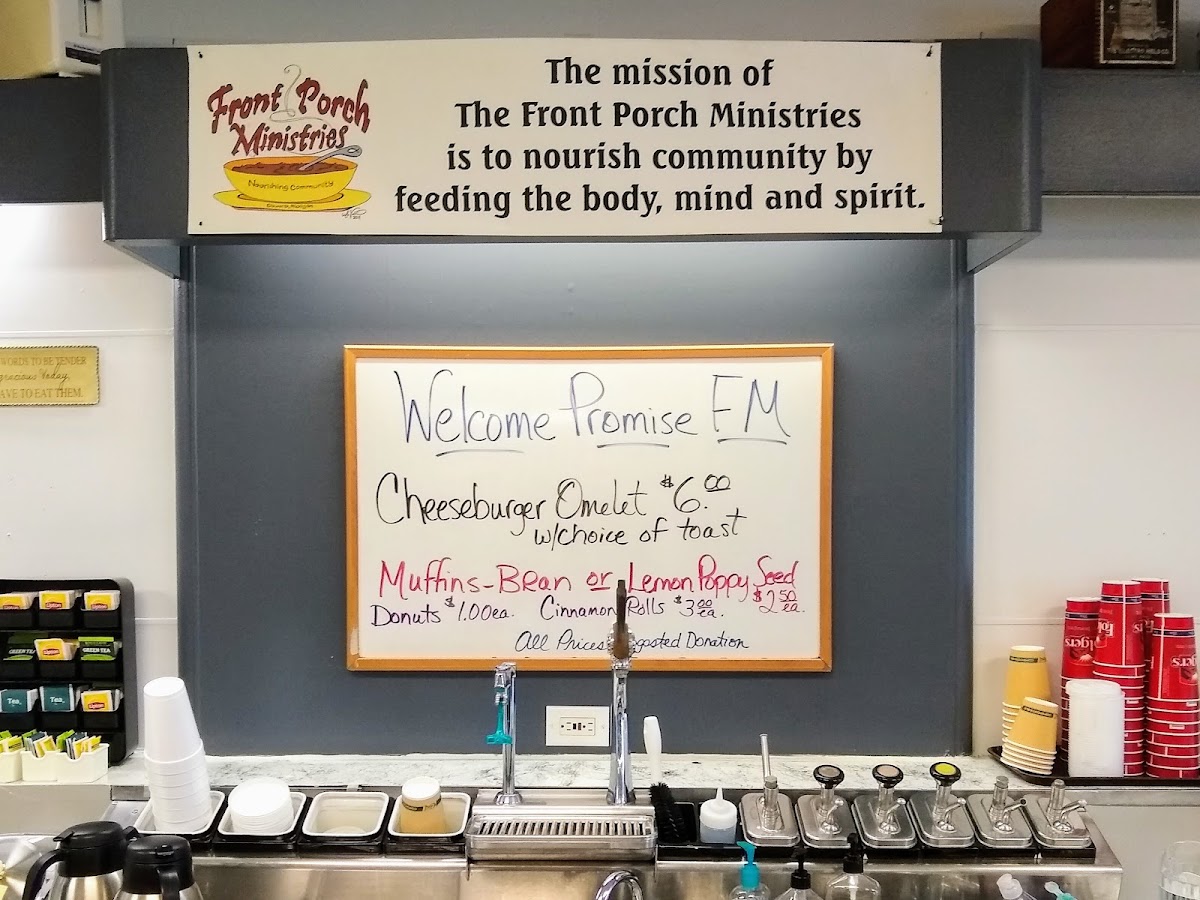 Front Porch
Ministries
Nourishing Community
The mission of
The Front Porch Ministries
is to nourish community by
feeding the body, mind and spirit.
WORDS TO BE TENDER
gracious today
AVE TO EAT THEM.
Welcome Promise FM
Cheeseburger Omelet $6.00
w/choice of toast
Muffins-Bran or Lemon Poppy Seed
$2.50 ea.
Donuts $1.00 ea. Cinnamon Rolls $3.00 ea.
All Prices gested Donation
Lipton
GREEN TEA
GREEN TEA
Tea.
Tea.
Lipton